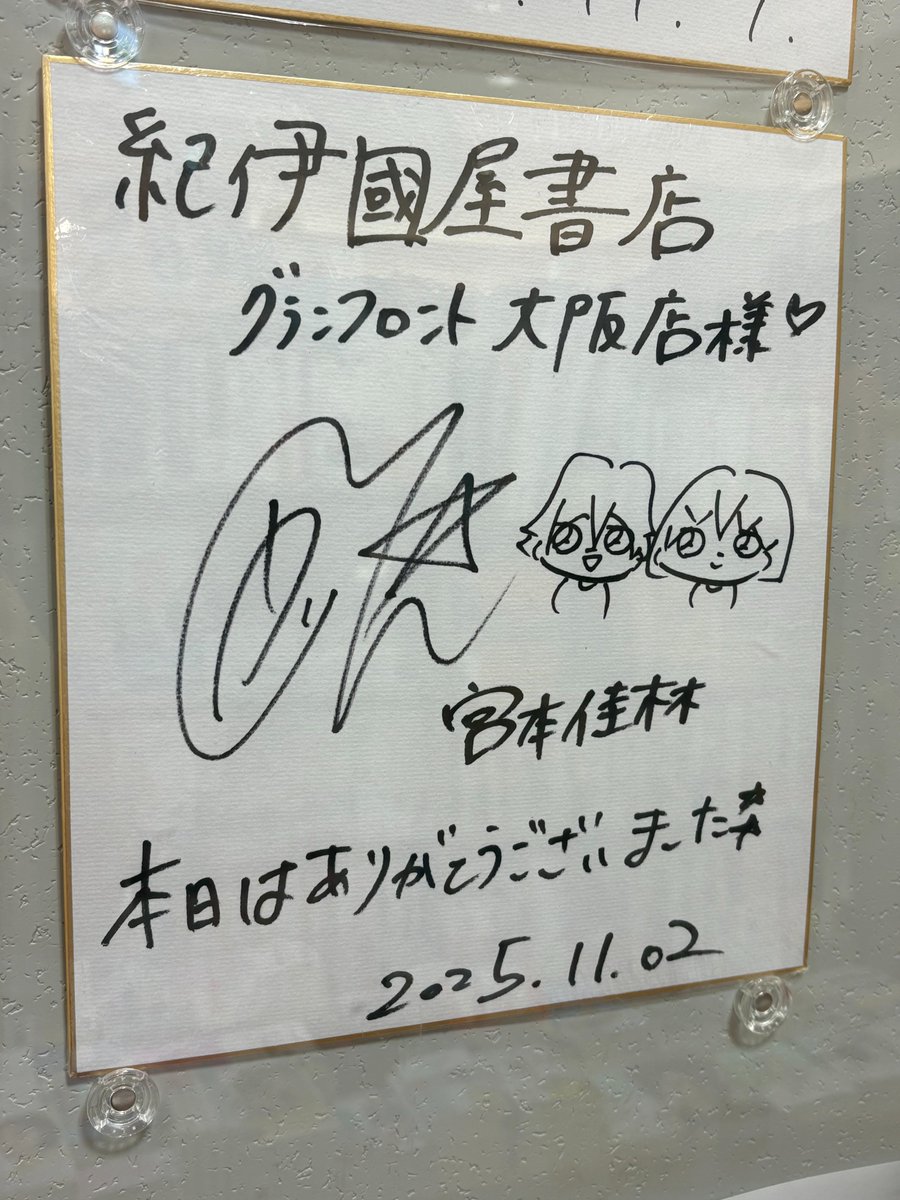 紀伊國屋書店
グランフロント 大阪店様♡
宮本佳林
本日はありがとうございました
2025.11.02